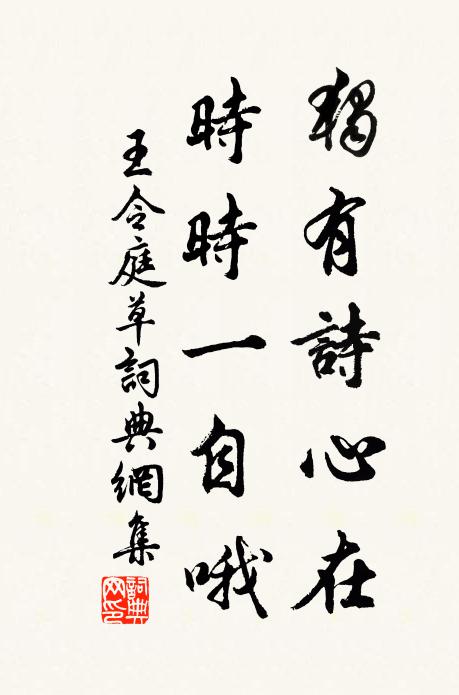 獨有詩心在
時時一自哦
王令庭草詞典網集
詞典網印